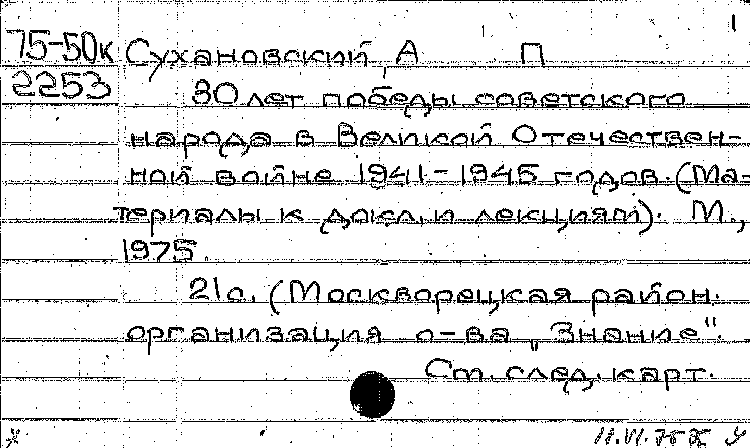 75-50к Сухановский, А П
2253
30 лет победы советского
народа в Великой Отечествен-
ной войне 1941-1945 годов. (Ма-
териалы к докл. и лекциям). М.,
1975.
21 с. (Москворецкая район.
организация о-ва "Знание".
См. след. карт.
11.VI.75